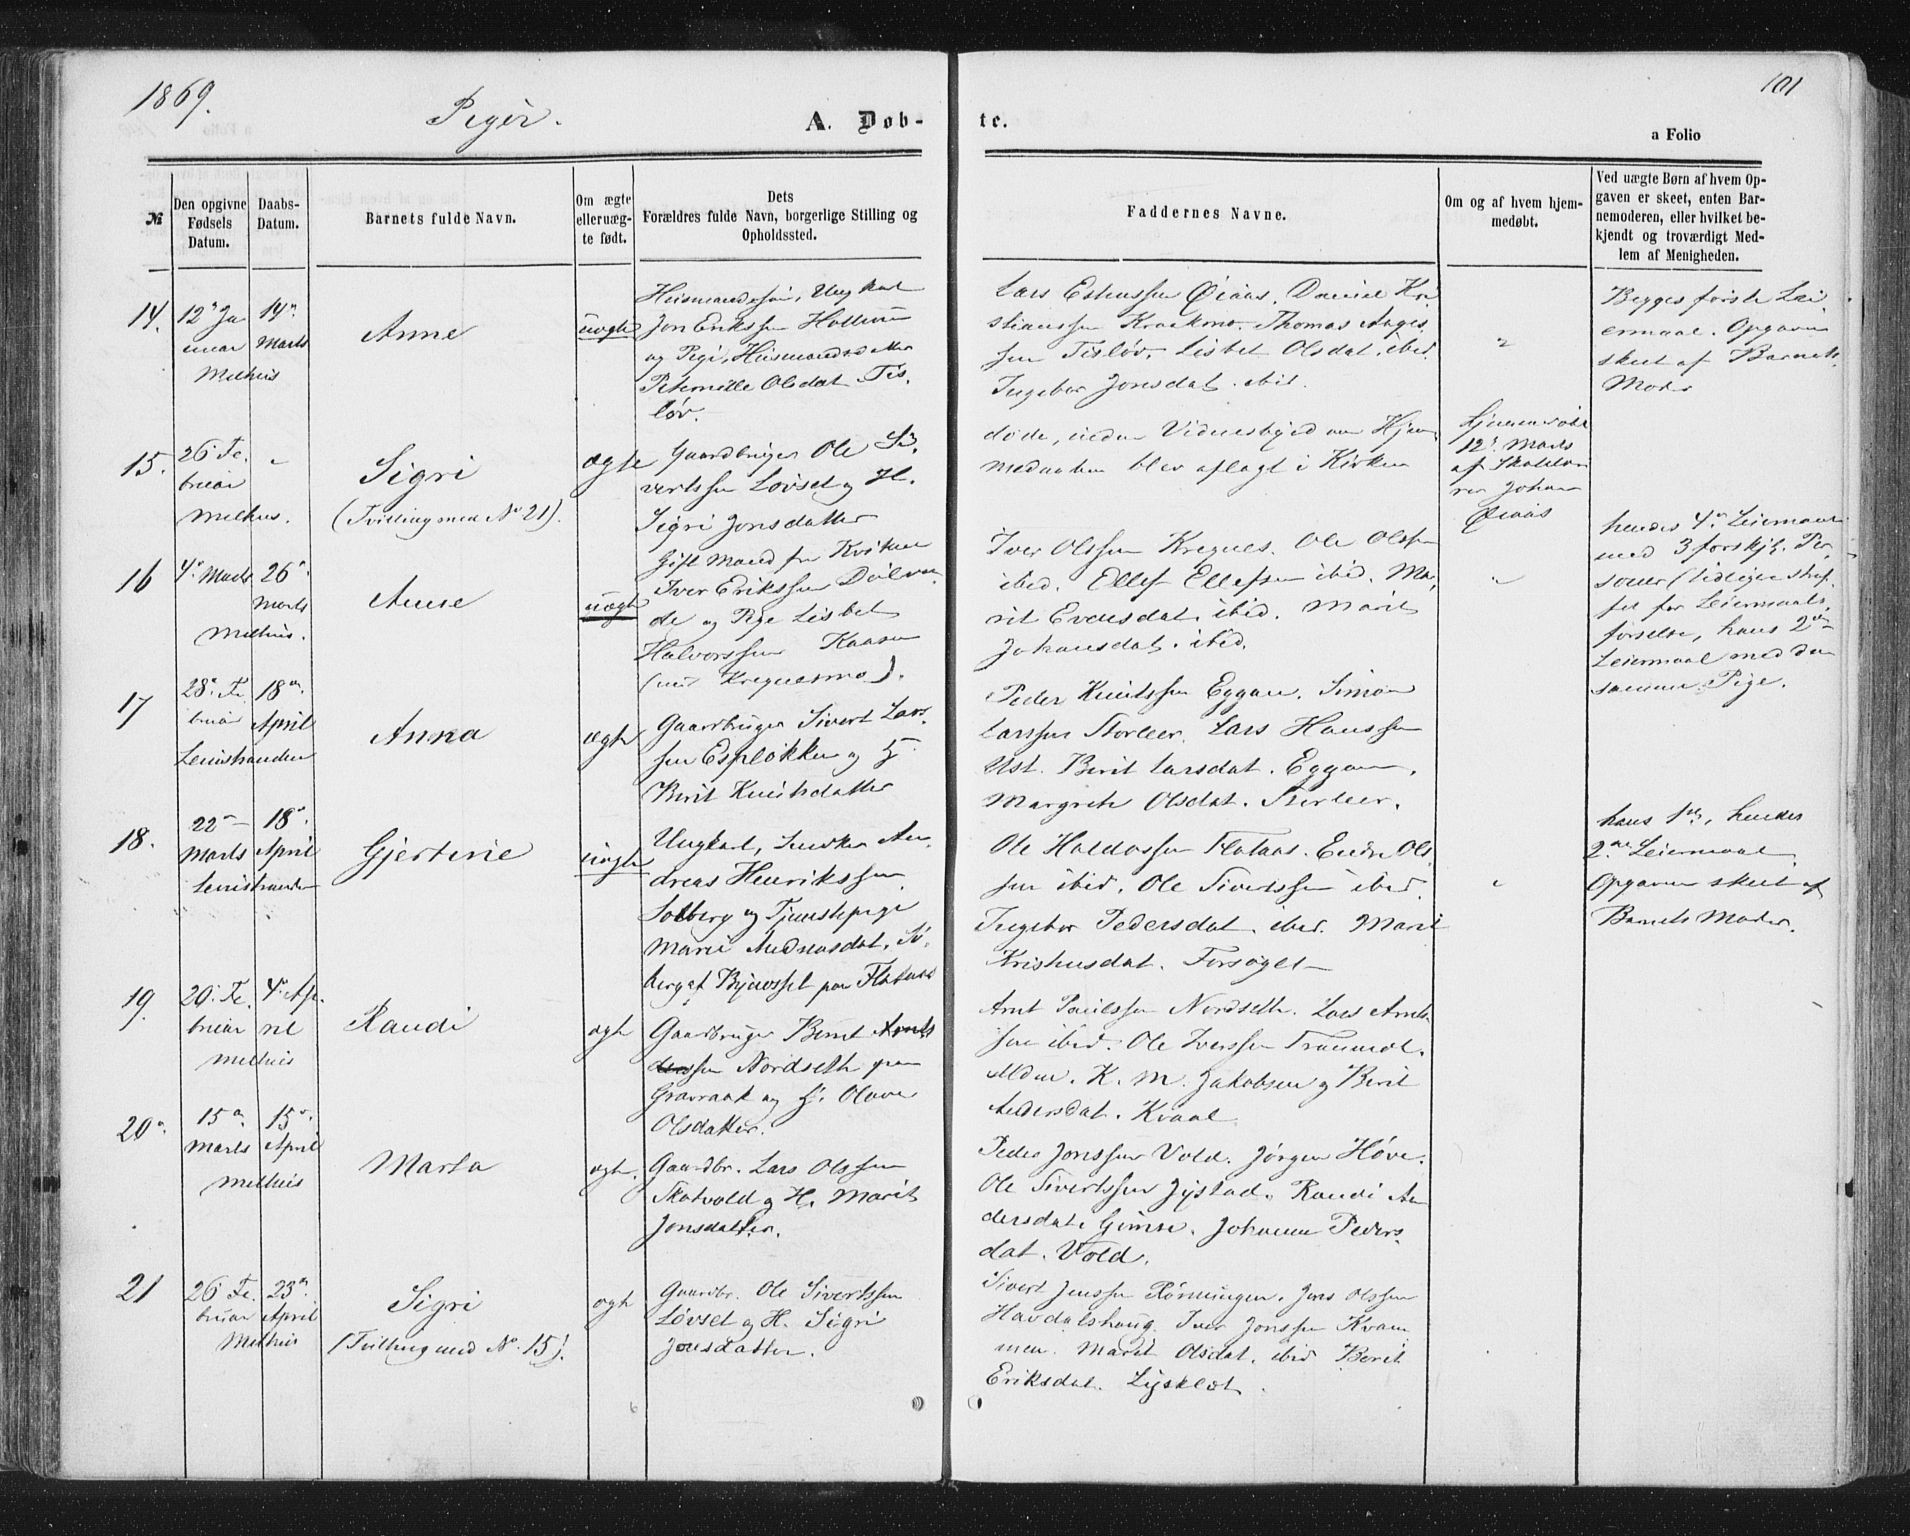 1869.
Piger.
A. Døb-
te.
101
a Folio
№
Den opgivne Fødsels Datum.
Daabs-Datum.
Barnets fulde Navn.
Om ægte eller uægte født.
Dets Forældres fulde Navn, borgerlige Stilling og Opholdssted.
Faddernes Navne.
Om og af hvem hjemmedøbt.
Ved uægte Børn af hvem Opgaven er skeet, enten Barnemoderen, eller hvilket bekjendt og troværdigt Medlem af Menigheden.
14.
12 Ja
nuar
Melhus
14de
Marts
Anne
uægte
Huusmandssøn, Ungkarl
Jon Erikssen
og Pige, Huusmandsdatter
Olsdat. Tis-
løv.
Lars Øiaas. Daniel Kri
stianssen Kraakmo. Thomas
sen Tisløv. Lisbet Olsdat. ibid.
Ingebor Jonsdat. ibid.
Begges første Lei
ermaal. Opgaven
skeet af Barnets
Moder
15.
26 Fe.
bruar
Melhus.
Sigri
(Tvilling med No 21).
ægte
Gaardbruger Ole Si
vertssen Løvset og H.
Sigri Jonsdatter
døde, inden Vidnesbyrd om Hjem
medaaben blev aflagt i Kirken
Hjemmedøbt
12 Marts
af Skolelæ
rer Johan
Øiaas
16
4 Marts
Melhus.
26
Marts
Anne
uægte
Gift Mand fra
Iver Erikssen
de og Pige Lisbet
Halvorssen Kaasen
Kregnesmo).
Iver Olssen Kregnes. Ole Olssen
ibid. Ellef Ellefsen ibid. Ma
rit Evensdat. ibid. Marit
Johansdat. ibid.
hendes 4de Leiermaal
med 3 forskj. Per
soner (tidligere straf
fet for Leiermaals
forseelse, hans 2det
Leiermaal med den
samme Pige.
17
28 Fe.
bruar
Leinstranden
18de
April
Anna
ægte
Gaardbruger Sivert Lars
sen Espløkken og H.
Berit Knutsdatter
Peder Knutssen Eggan. Simon
Larssen Storleer. Lars Hanssen
Ust. Berit Larsdat. Eggan.
Margrete Olsdat. Storleer.
18.
22
Marts
Leinstranden
18
April
Gjertine
uægte
Ungkarl, Svensken An
dreas Henrikssen
Solberg og Tjenestepige
Marie Andreasdat.
Flataas
Ole Haldossen Flataas. Endre Ols
sen ibid. Ole Sivertssen ibid.
Ingebor Pedersdat. ibid. Marit
Kristensdat. Forsøget
hans 1ste, hendes
2det Leiermaal
Opgaven skeet af
Barnets Moder.
19.
20 Fe.
bruar
Melhus
4 Ap
ril
Randi
ægte
Gaardbruger Bernt Arnts
sen Nordseth paa
Gravraak og H. Olava
Olsdatter.
Arnt Paulssen Nordseth. Lars Arnts
sen ibid. Ole Iverssen
Mdm. K. M. Jakobsen og Berit
Andersdat. Kvaal
20.
15de
Marts
Melhus
15
April
Marta
ægte.
Gaardbr. Lars Olssen
Skotvold og H. Marit
Jonsdatter.
Peder Jonssen Vold. Jørgen Høve.
Ole Sivertssen Jystad. Randi An
dersdat. Gimse. Johanna Peders
dat. Vold.
21
26 Fe.
bruar
Melhus
23de
April
Sigri
(Tvilling med No. 15).
ægte
Gaardbr. Ole Sivertssen
Løvset og H. Sigri
Jonsdatter.
Sivert Jenssen Rønningen. Jens Olssen
Havdalshaug. Iver Jonssen Kvam
men. Marit Olsdat. ibid Berit
Eriksdat. Lysklæt.